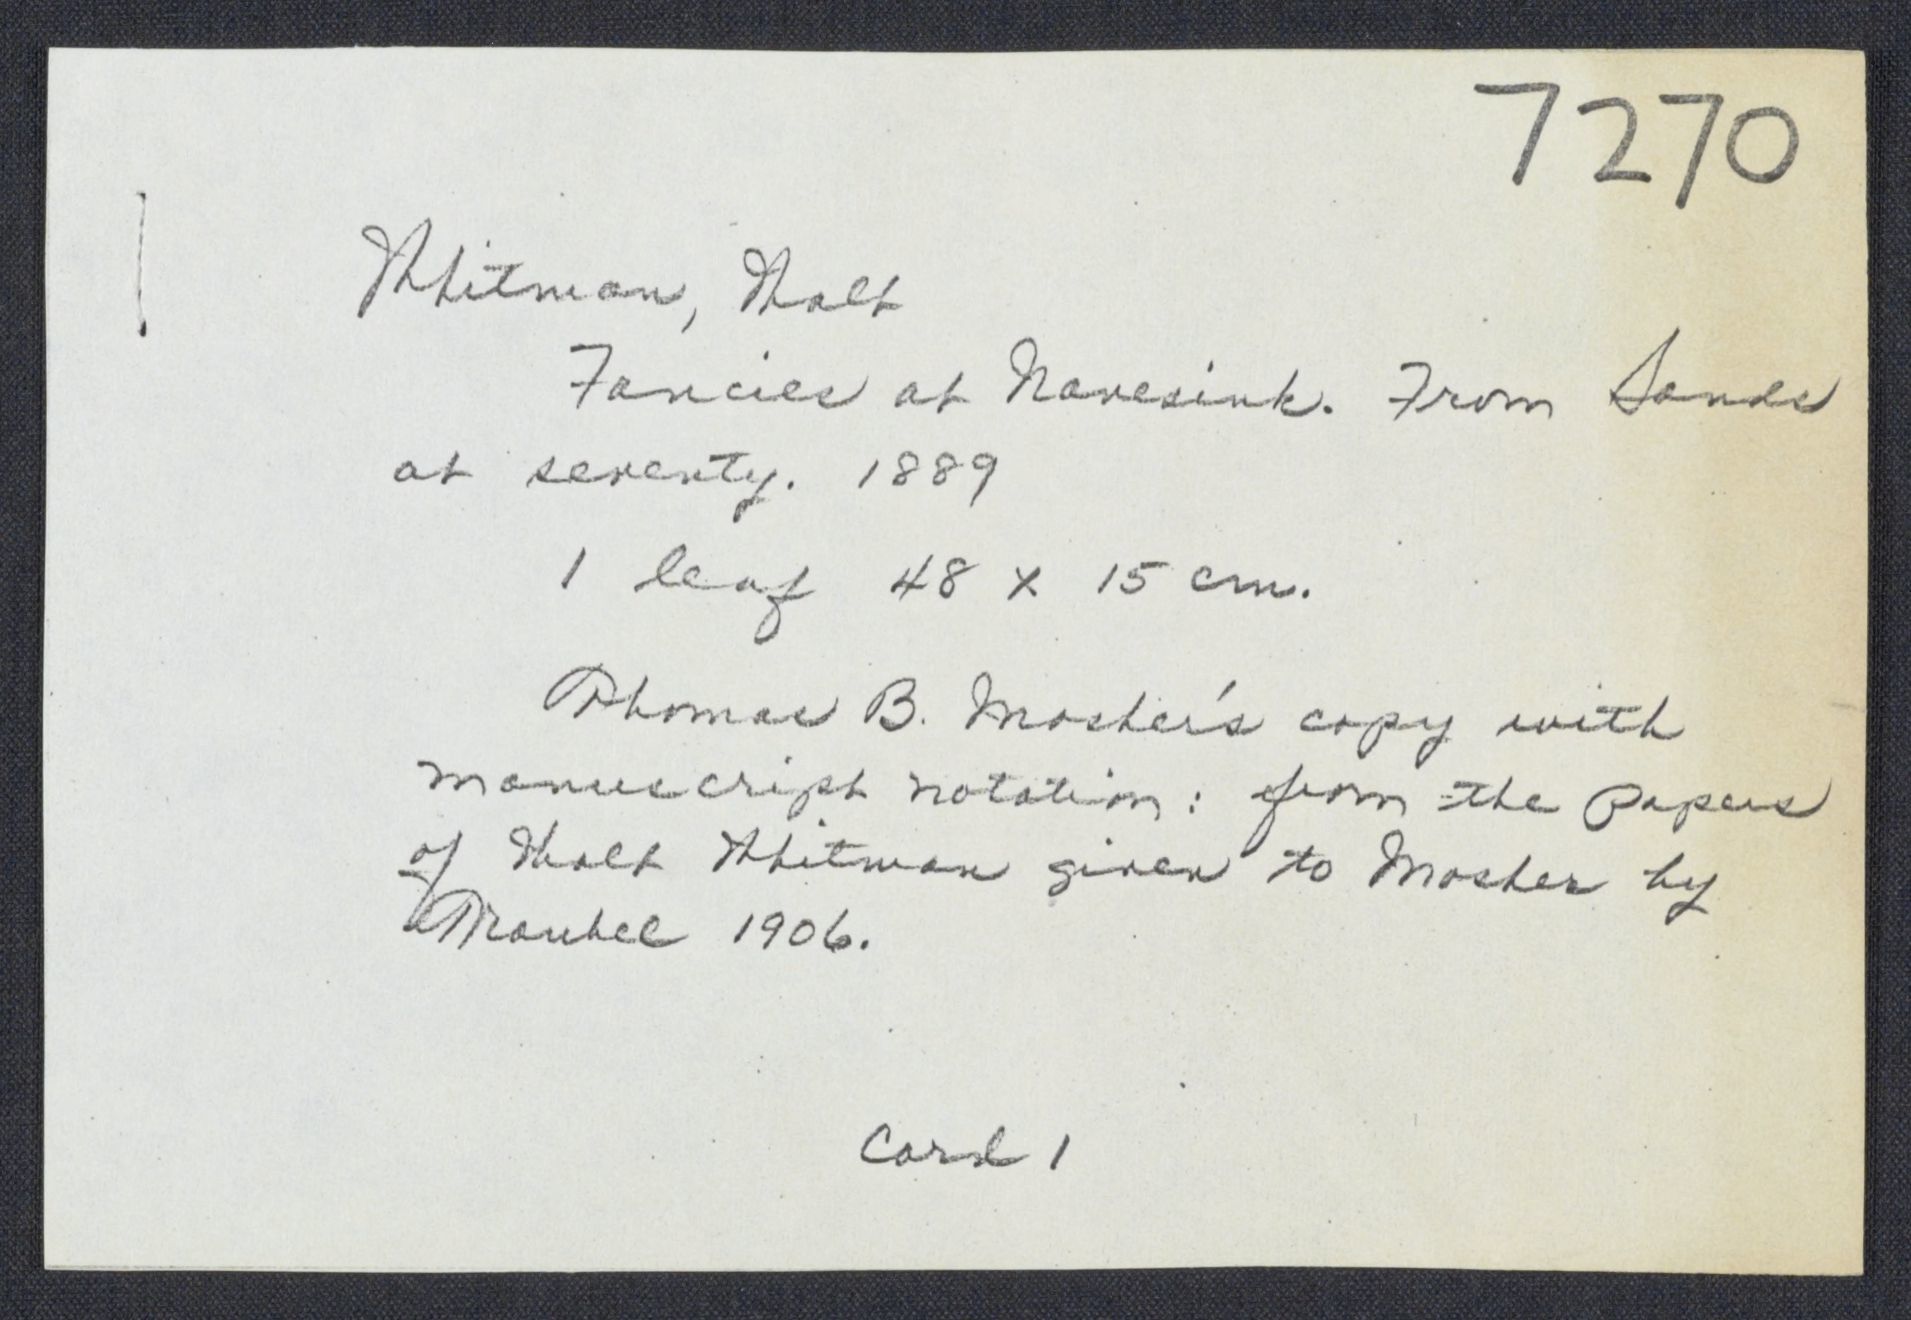 7270
Whitman, Walt
Fancies at Navesink. From Sands
at seventy. 1889
1 leaf 48 x 15 cm.
Thomas B. Mosher's copy with
manuscript notation: from the papers
of Walt Whitman given to Mosher by
Traubel 1906.
Card 1